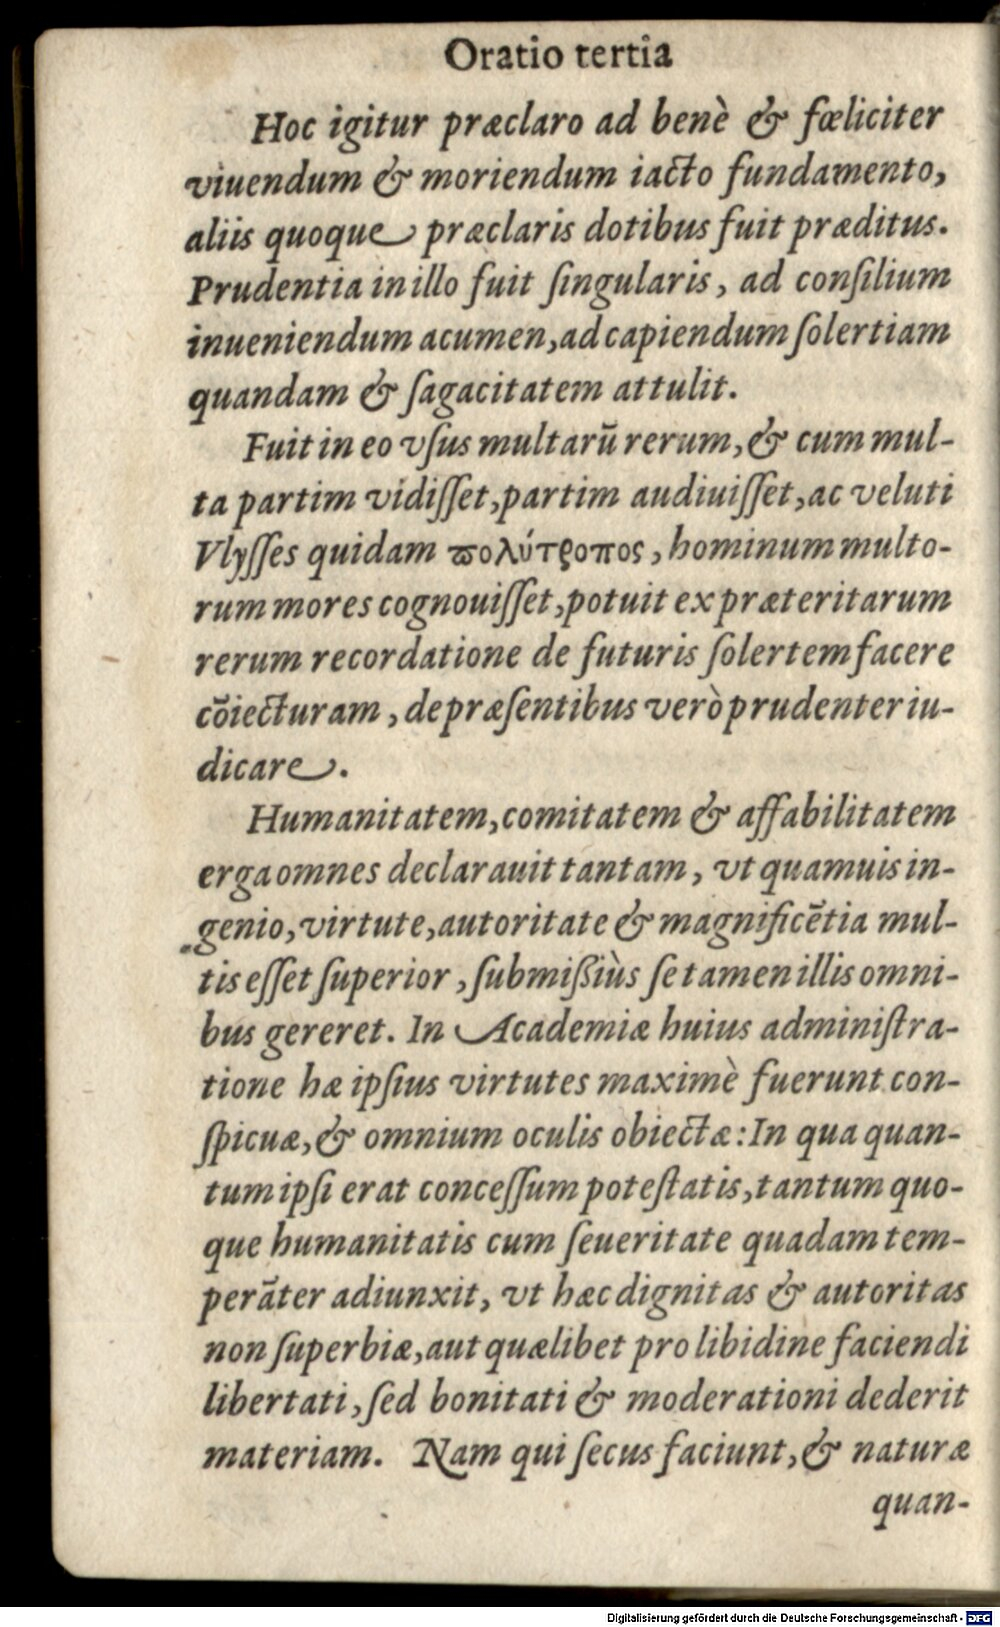 Oratio tertia
Hoc igitur præclaro ad benè & fœliciter
viuendum & moriendum iacto fundamento,
aliis quoque præclaris dotibus fuit præditus.
Prudentia in illo fuit ſingularis, ad conſilium
inueniendum acumen, ad capiendum ſolertiam
quandam & ſagacitatem attulit.
Fuit in eo vſus multarū rerum, & cum mul-
ta partim vidiſſet, partim audiuiſſet, ac veluti
Vlyſſes quidam ϖολύτροπος, hominum multo-
rum mores cognouiſſet, potuit ex præteritarum
rerum recordatione de futuris ſolertem facere
cōiecturam, de præſentibus verò prudenter iu-
dicare.
Humanitatem, comitatem & affabilitatem
erga omnes declarauit tantam, vt quamuis in-
genio, virtute, autoritate & magnificētia mul-
tis eſſet ſuperior, ſubmißiùs ſe tamen illis omni-
bus gereret. In Academiæ huius adminiſtra-
tione hæ ipſius virtutes maximè fuerunt con-
ſpicuæ, & omnium oculis obiectæ: In qua quan-
tum ipſi erat conceſſum poteſtatis, tantum quo-
que humanitatis cum ſeueritate quadam tem-
perāter adiunxit, vt hæc dignitas & autoritas
non ſuperbiæ, aut quælibet pro libidine faciendi
libertati, ſed bonitati & moderationi dederit
materiam. Nam qui ſecus faciunt, & naturæ
quan-
Digitalisierung gefördert durch die Deutsche Forschungsgemeinschaft - DFG